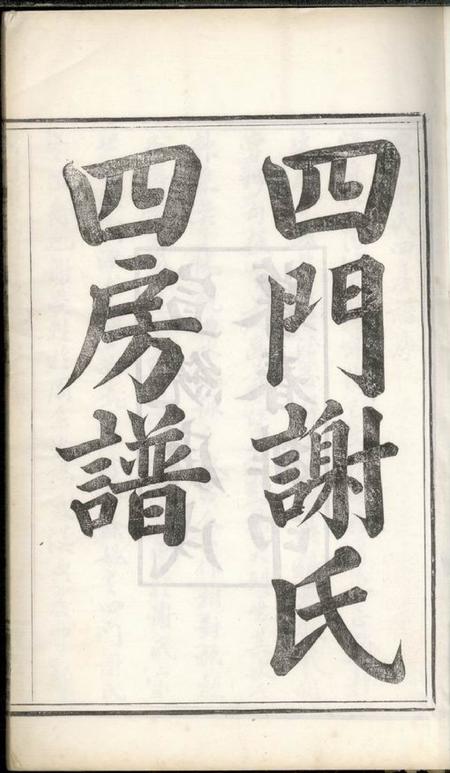 四門謝氏
四房譜